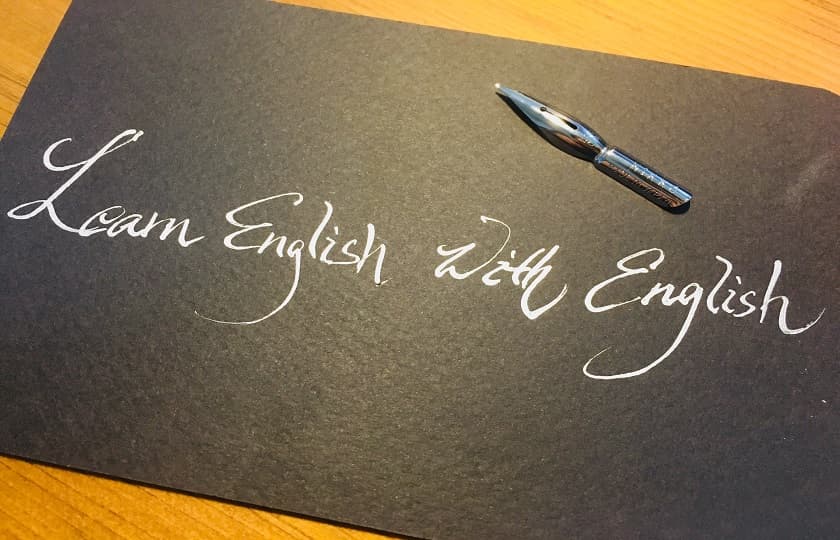 Learn English With English